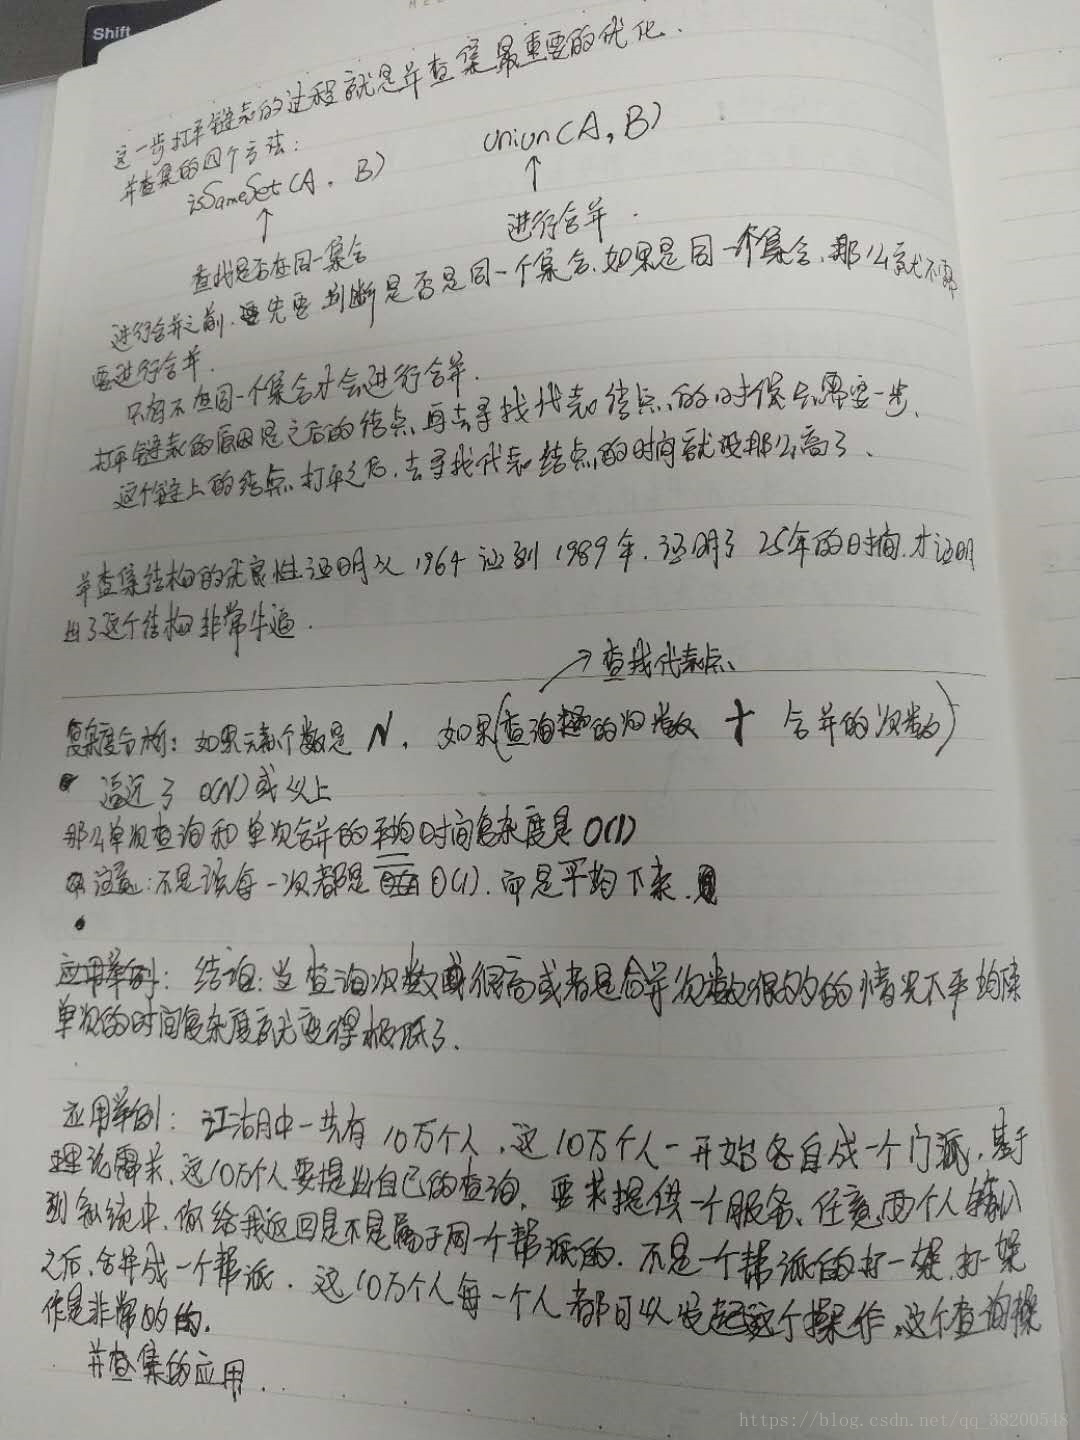 Shift
这一步打平链表的过程就是并查集最重要的优化.
并查集的四个方法:
isSameSet(A, B) union(A, B)
↑ ↑
查找是否在同一集合 进行合并.
进行合并之前, 先要判断是否是同一个集合.如果是同一个集合, 那么就不需
要进行合并.
只有不在同一个集合才会进行合并.
打平链表的原因是之后的结点再去寻找代表结点的时候只需要一步,
这个链上的结点打平之后,去寻找代表结点的时间就没那么高了.
并查集结构的优良性证明从1964证到1989年.证明了25年的时间,才证明
出了这个结构非常牛逼.
→查找代表点
复杂度分析: 如果元素个数是N, 如果(查询的次数 + 合并的次数)
逼近了O(N)或以上
那么单次查询和单次合并的平均时间复杂度是O(1)
注意:不是说每一次都是O(1).而是平均下来.
应用举例: 结论:当查询次数很高或者是合并次数很多的情况下平均来
单次的时间复杂度就变得极低了.
应用举例: 江湖中一共有10万个人,这10万个人一开始各自成一个门派,基于
理论需求,这10万个人要提出自己的查询,要求提供一个服务、任意两个人输入
到系统中,你给我返回是不是属于同一个帮派的.不是一个帮派的打一架,打一架
之后,合并成一个帮派.这10万个人每一个人都可以发起这个操作,这个查询操
作是非常的的.
并查集的应用.
https://blog.csdn.net/qq_38200548